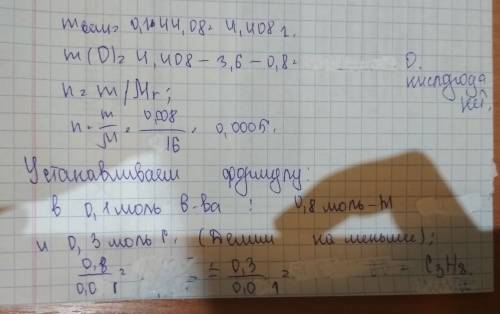 m вещ = 0,1·44,08 = 4,408 г.
m(O) = 4,408 - 3,6 - 0,8 = 0.
кислорода нет.
n = m/Mr;
n = m/M = 0,008/16 = 0,0005.
Устанавливаем формулу:
в 0,1 моль в-ва : 0,8 моль-H
и 0,3 моль C. (Делим на меньшее);
0,8/0,0 1 = : 0,3/0,0 1 = = C3H8.